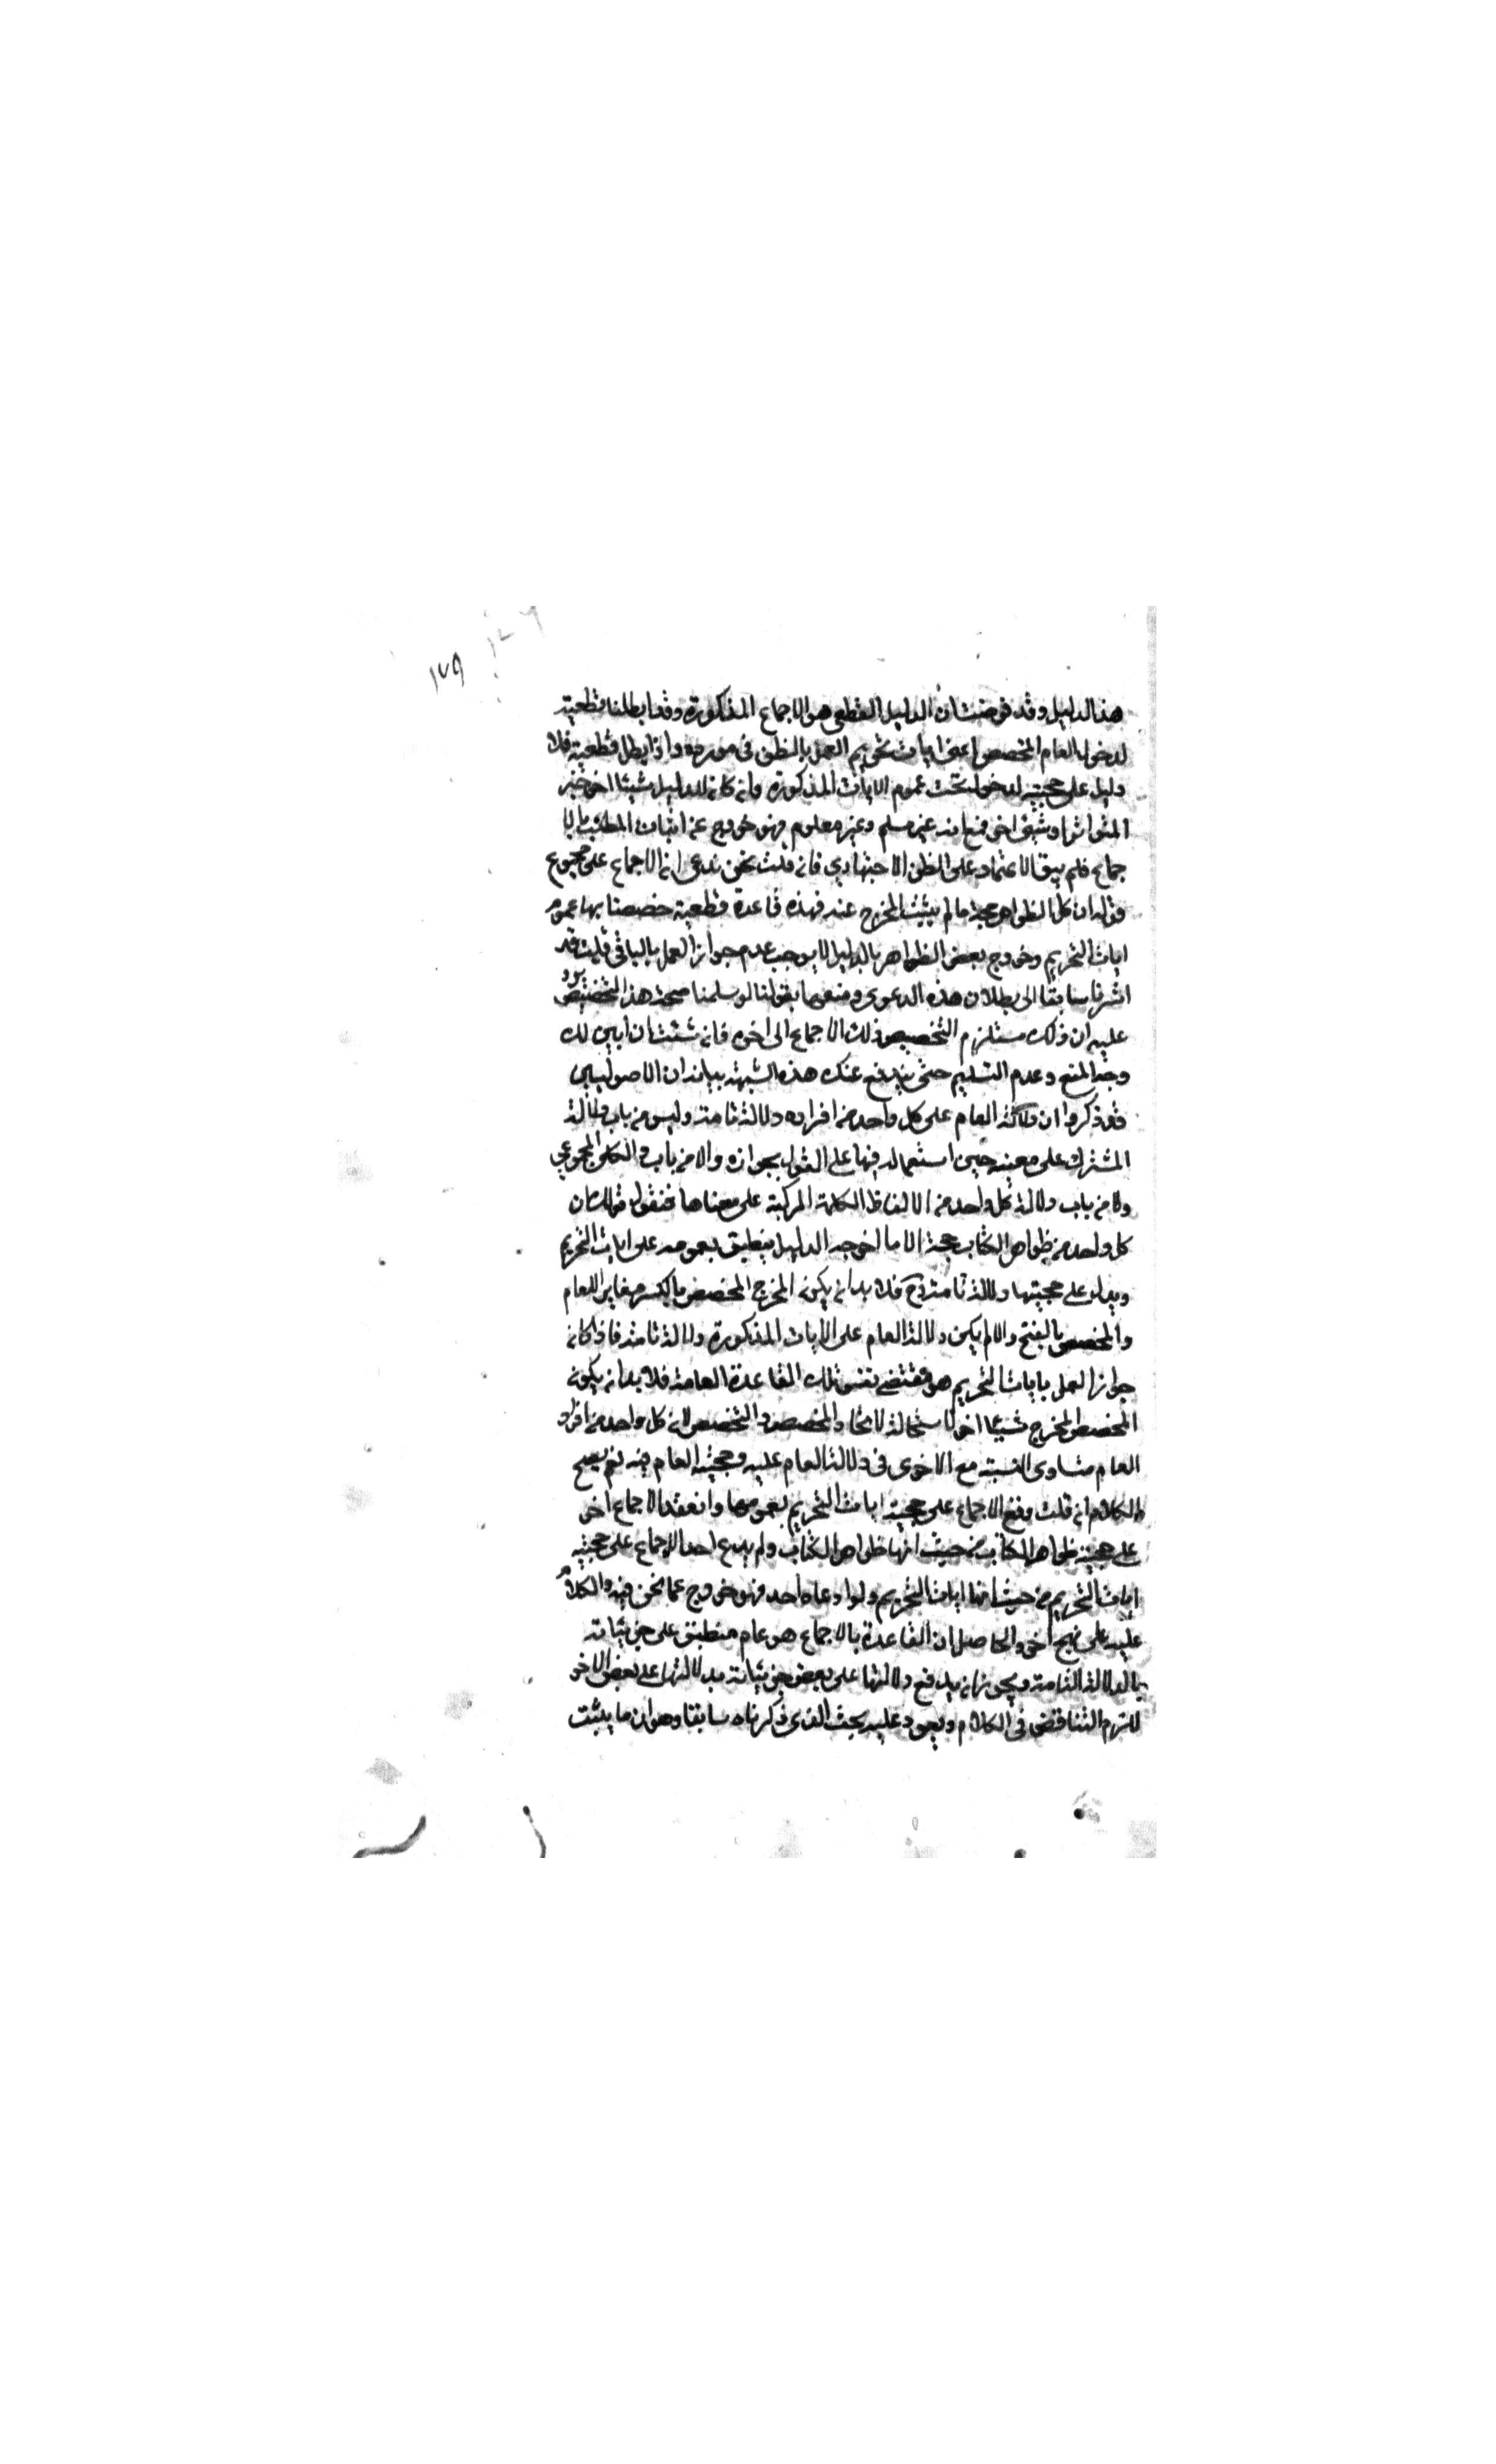 ١٧٩
هذا الدليل وقد فرضت ان الدليل القطعي هو الاجماع المذكورة وقد ابطلنا قطعيته
لدخول العام المخصص اعني ايات تحريم العمل بالظن في مورده واذا بطل قطعيته فلا
دليل على حجيته لدخوله تحت عموم الايات المذكورة وان كان الدليل شيئا اخر خبر
المتواتر او شيئ اخر فمع انه غير مسلم وغير معلوم فهو خروج عن اثبات المطلب بالا
جماع فلم يبق الاعتماد على الظن الاجتهادي فان قلت نحن ندعى ان الاجماع على مجموع
قوله ان كل الظواهر حجة ما لم يثبت المخرج عنه فهذه قاعدة قطعية خصصنا بها عموم
ايات التحريم وخروج بعض الظواهر بالدليل لا يوجب عدم جواز العمل بالباقي قلت قد
اشرنا سابقا الى بطلان هذه الدعوى ومنعها بقولنا لو سلمنا صحة هذا التخصيص يرد
عليه ان ذلك مستلزم التخصيص ذلك الاجماع الى اخره فان شئت ان ابين لك
وجه المنع وعدم التسليم حتى يندفع عنك هذه الشبهة بيانه ان الاصوليين
قد ذكروا ان دلالة العام على كل واحد من افراده دلالة تامة وليس من باب دلالة
المشترك على معنيه حين استعماله فيها على القول بجوازه والا من باب الكلى المجموعي
ولا من باب دلالة كل واحد من الالفاظ الكلمة المركبة على معناها فنقول قولك ان
كل واحد من ظواهر الكتاب حجة الا ما اخرجه الدليل ينطبق بعمومه على ايات التحريم
ويدل على حجيتها دلالة تامة وح فلا بد ان يكون المخرج المخصص بالكسر مغاير اللعام
والمخصص بالفتح والا لم يكن دلالة العام على الايات المذكورة دلالة تامة فاذا كان
جواز العمل بايات التحريم هو مقتضى نفس تلك القاعدة العامة فلا بد ان يكون
المخصص المخرج شيئا اخر لاستحالة لاتحاد المخصص والتخصص لان كل واحد من افراد
العام متساوى النسبة مع الاخرى في دلالة العام عليه وحجيته العام فيه نعم يصح
الكلام ان قلت وقع الاجماع على حجية ايات التحريم بعمومها وانعقد الاجماع اخر
على حجية ظواهر الكتاب من حيث انها ظواهر الكتاب ولم يدع احد الاجماع على حجيته
ايات التحريم من حيث انها ايات التحريم ولو ادعاه احد فهو خروج عما نحن فيه والكلام
عليه على نهج اخر والحاصل ان القاعدة بالاجماع هو عام منطبق على جزئياته
بالدلالة التامة ويجوز ان يدفع دلالتها على بعض جزئياته بدلالتها على بعض الاخر
للزم التناقض في الكلام ويعود عليه بحث الذى ذكرناه سابقا وهو ان ما يثبت